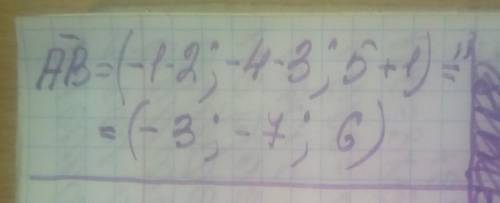 AB=(-1-2;-4-3;5+1)=
=(-3;-7;6)